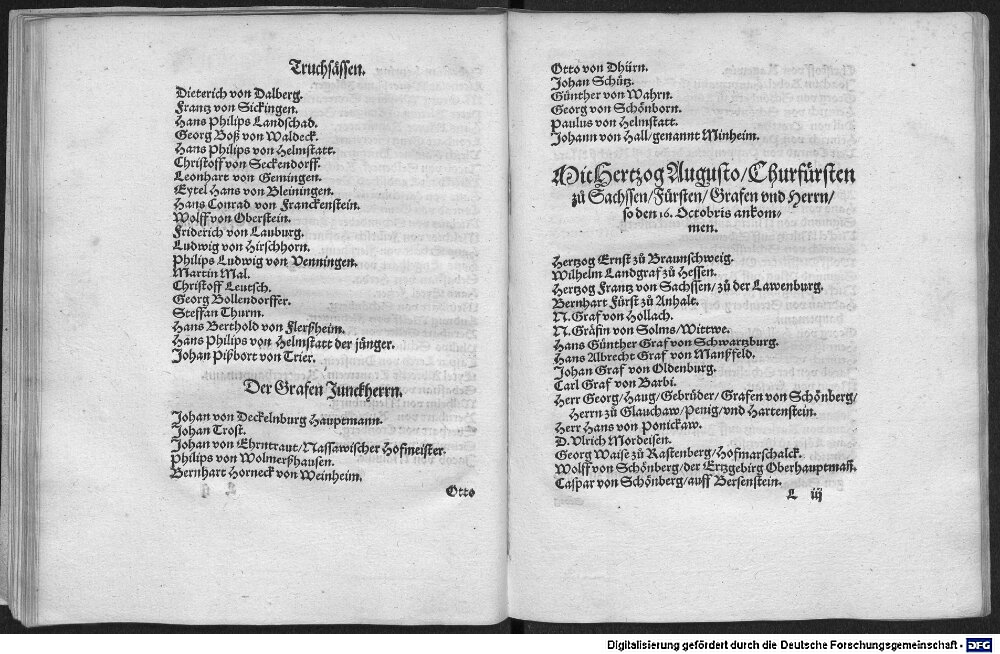 Truchsässen.
Dieterich von Dalberg.
Frantz von Sickingen.
Hans Philips Landschad.
Georg Boß von Waldeck.
Hans Philips von Helmstatt.
Christoff von Seckendorff.
Leonhart von Gemingen.
Eytel Hans von Bleiningen.
Hans Conrad von Franckenstein.
Wolff von Oberstein.
Friderich von Lauburg.
Ludwig von Hirschhorn.
Philips Ludwig von Venningen.
Martin Mal.
Christoff Leutsch.
Georg Bollendorffer.
Steffan Thurm.
Hans Berthold von Flerßheim.
Hans Philips von Helmstatt der jünger.
Johan Pißbort von Trier.
Der Grafen Junckherrn.
Johan von Deckelnburg Hauptmann.
Johan Trost.
Johan von Ehrntraut/Nassawischer Hofmeister.
Philips von Wolmerßhausen.
Bernhart Horneck von Weinheim.
Otto
Otto von Dhürn.
Johan Schütz.
Günther von Wahrn.
Georg von Schönborn.
Paulus von Helmstatt.
Johann von Hall/genannt Minheim.
Mit Hertzog Augusto/Churfürsten
zů Sachssen/Fürsten/Grafen vnd Herrn/
so den 16. Octobris ankom-
men.
Hertzog Ernst zů Braunschweig.
Wilhelm Landgraf zů Hessen.
Hertzog Frantz von Sachssen/zů der Lawenburg.
Bernhart Fürst zů Anhalt.
N. Graf von Hollach.
N. Gräfin von Solms/Wittwe.
Hans Günther Graf von Schwartzburg.
Hans Albrecht Graf von Manßfeld.
Johan Graf von Oldenburg.
Carl Graf von Barbi.
Herr Georg/Haug/Gebrüder/Grafen von Schönberg/
Herrn zů Glauchaw/Penig/vnd Hartenstein.
Herr Hans von Ponickaw.
D. Vlrich Mordeisen.
Georg Waise zů Rastenberg/Hofmarschalck.
Wolff von Schönberg/der Ertzgebirg Oberhauptmañ.
Caspar von Schönberg/auff Bersenstein.
L iij
Digitalisierung gefördert durch die Deutsche Forschungsgemeinschaft - DFG